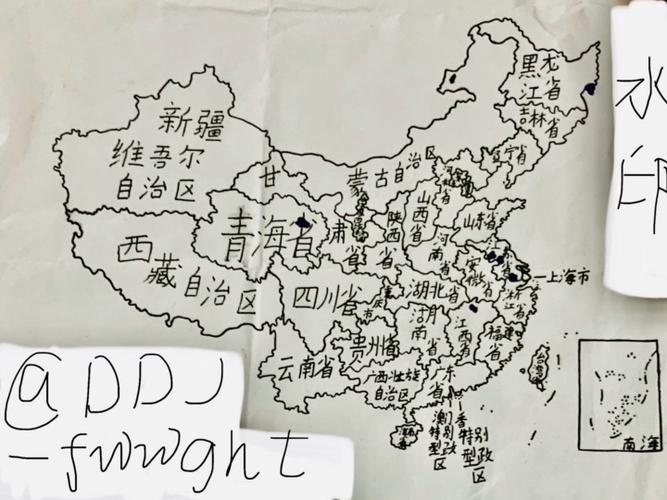 黑龙
江省
吉林省
新疆
维吾尔
自治区
甘
肃
省
蒙古自治区
辽宁省
山西省
陕西省
山东省
河南省
青海省
西藏自治区
四川省
重庆市
湖北省
安徽省
上海市
浙江省
湖南省
江西省
福建省
贵州省
云南省
广西壮族
自治区
广东
省
台湾省
海南
南海
澳门特别行政区
香港特别行政区
水
印
@DDJ
-fwwght